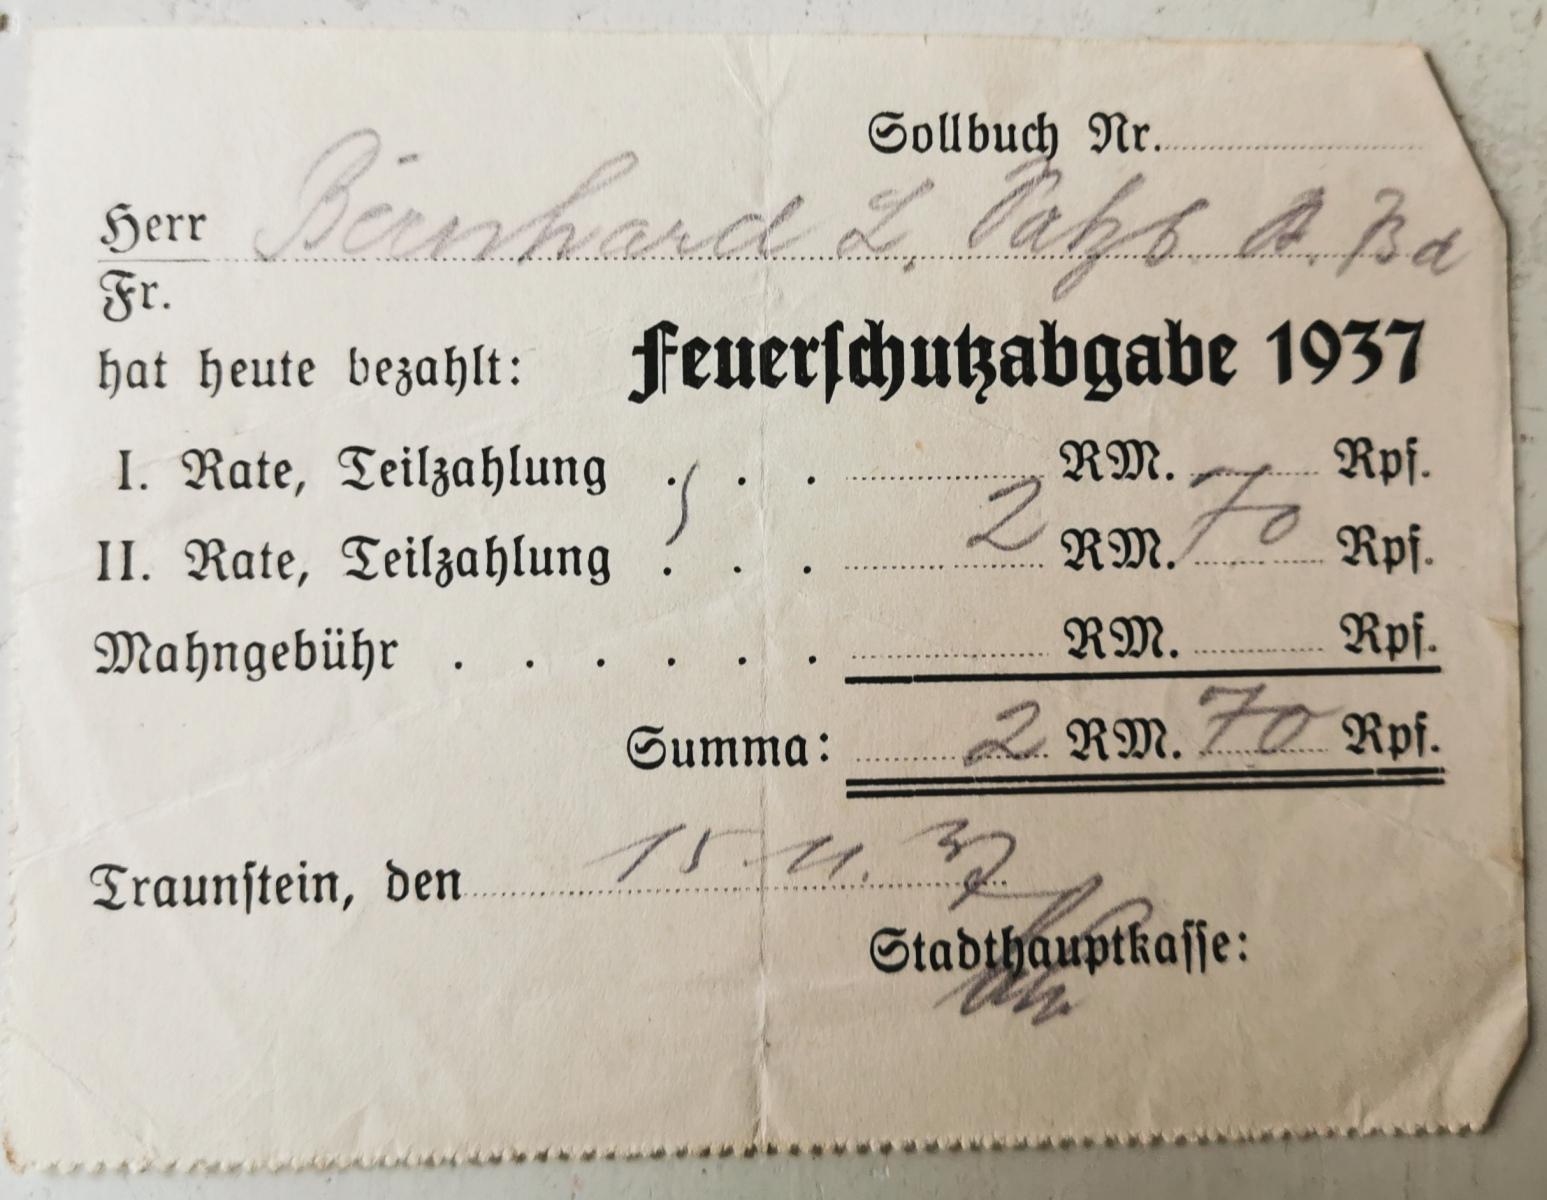 Sollbuch Nr.
Herr Bernhard L.
Fr.
hat heute bezahlt: Feuerschutzabgabe 1937
I. Rate, Teilzahlung . . . RM. Rpf.
II. Rate, Teilzahlung . . . 2 RM. 70 Rpf.
Mahngebühr . . . . . . RM. Rpf.
Summa: 2 RM. 70 Rpf.
Traunstein, den 15. 11. 37
Stadthauptkasse: